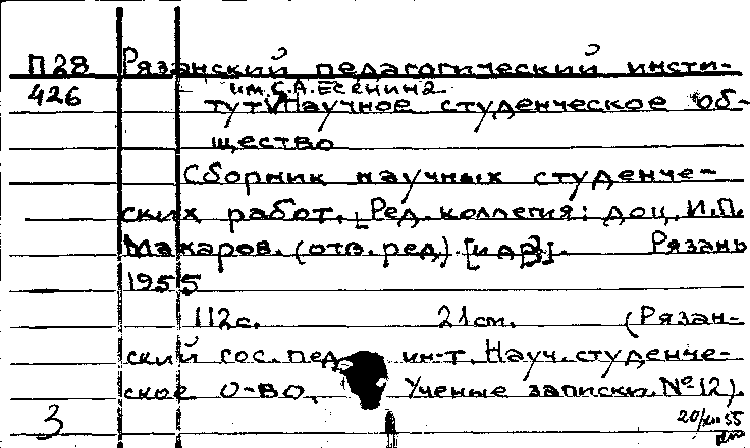 П28 Рязанский педагогический инсти-
426 им. С.А. Есенина
тут. Научное студенческое об-
щество
Сборник научных студенче-
ских работ. [Ред. коллегия: доц. И.П.
Макаров. (отв. ред) [и др.]. Рязань
1955
112с. 21см. (Рязан-
ский гос. пед. ин-т. Науч. студенче-
ское о-во. Ученые записки. № 12).
3 20/XII 55